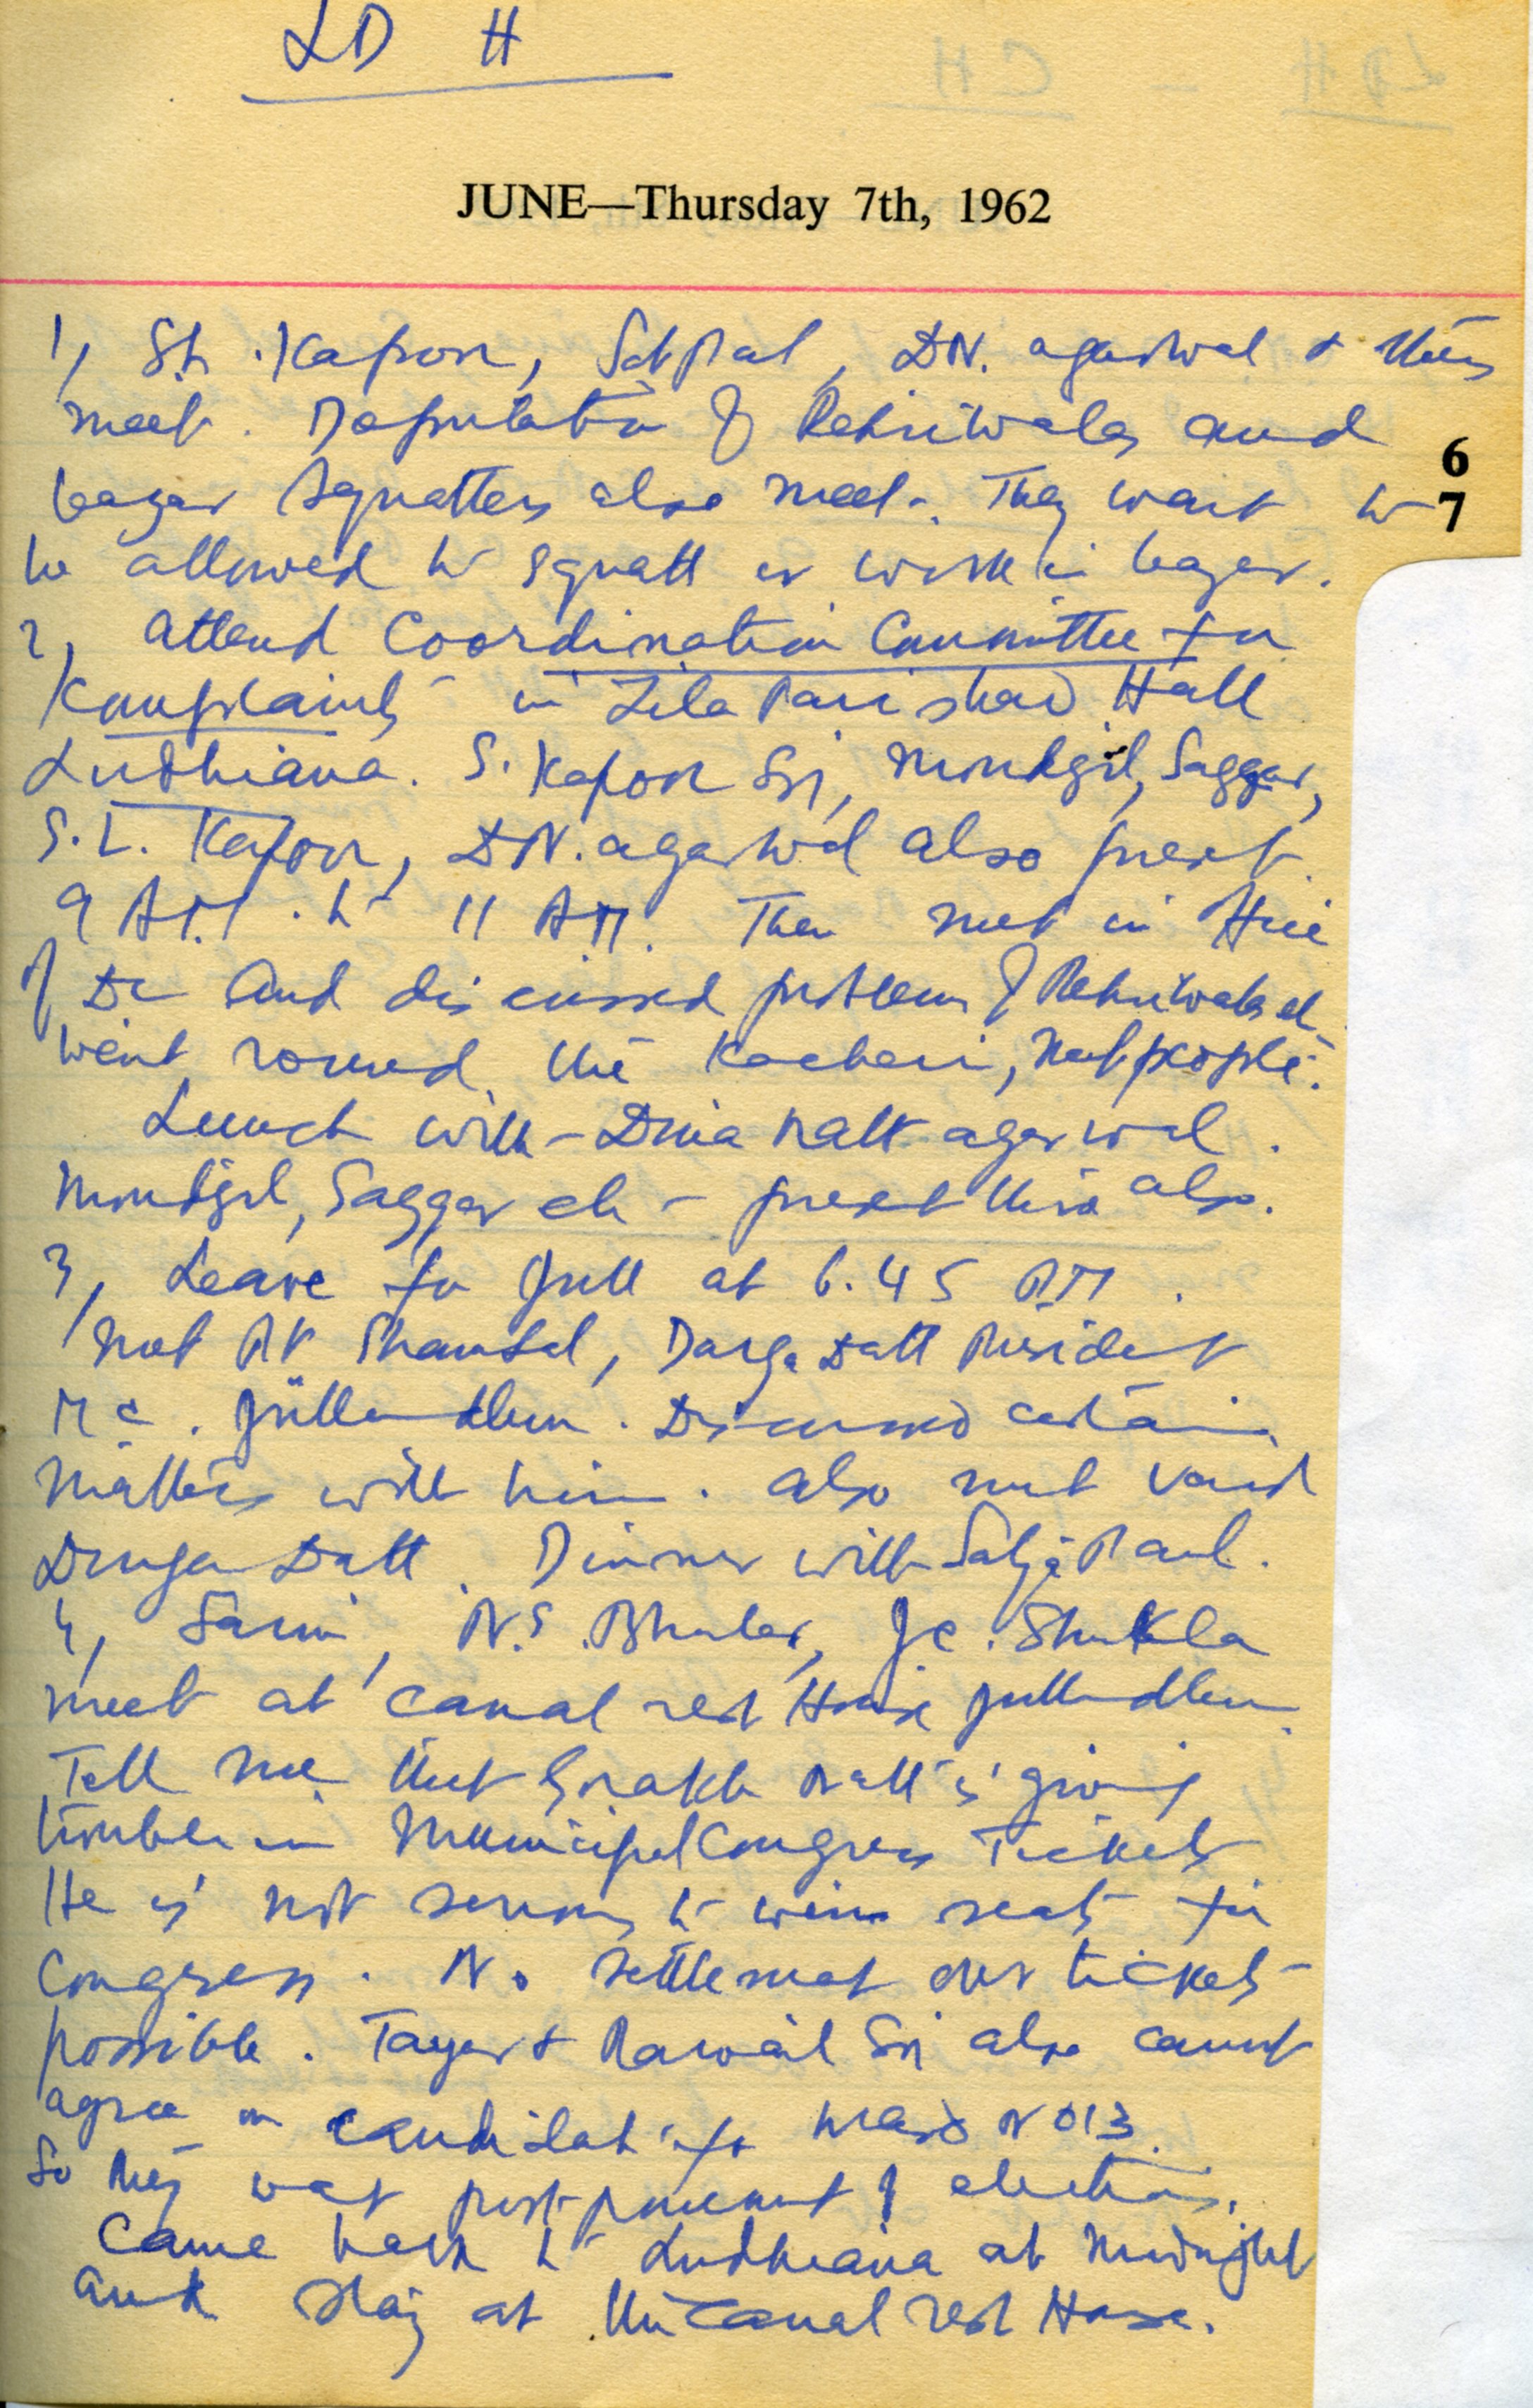 LD H
JUNE—Thursday 7th, 1962
1, Sh. Kapoor, Satpal, DN. agarwal & others
meet. Deputation of Rehriwalas and
bazar squatters also meet. They want to
6
7
be allowed to squatt or work in bazar.
2, attend Coordination Committee for
Komplaints in Zila Parishad Hall
Ludhiana. S. Kapoor Sr, Moudgil, Saggar,
S.L. Kapoor, DN. agarwal also present.
9 AM. to 11 AM. Then met in office
of DC and discussed problem of Rehriwalas etc
went round the Kacheri, met people.
Lunch with Dina Natt agarwal.
Moudgil, Saggar etc present there also.
3, Leave for Jull at 6.45 PM.
met Durga Datt President
MC. Jullundhur. Discussed certain
matters with him. also met Vaid
Durga Datt. Dinner with Satya Paul.
4, Saini, N.S. Bhular, JC. Shukla
meet at canal rest House Jullundhur.
Tell me that Gorakh Natt is giving
trouble in Municipal Congress Tickets
He is not serious to win seats for
Congress. No settlement over tickets
possible. Tayer & Rawail Sn also cannot
agree on candidate for ward No 13.
So they want postponement of elections.
Came back to Ludhiana at Midnight
and stay at the Canal rest House.